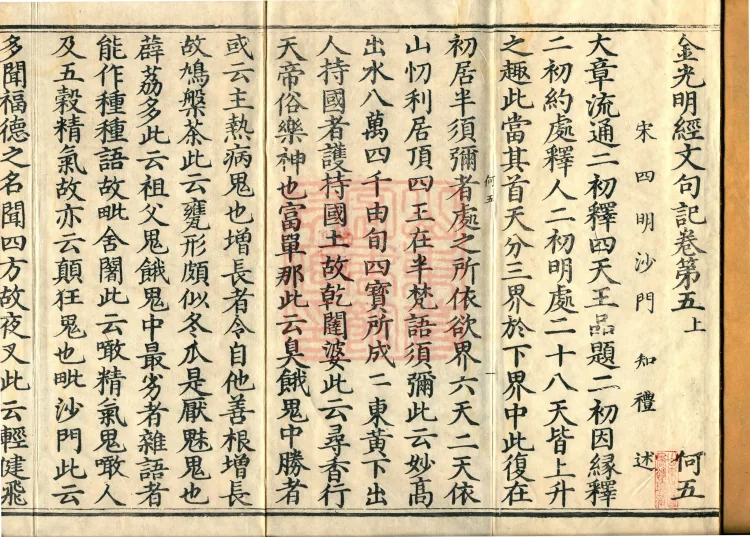 金光明經文句記卷第五上 何五
宋四明沙門 知禮 述
大章流通二初釋四天王品題二初因緣釋
二初約處釋人二初明處二十八天皆上升
之趣此當其首天分三界於下界中此復在
何五 一
初居半須彌者處之所依欲界六天二天依
山忉利居頂四王在半梵語須彌此云妙高
出水八萬四千由旬四寶所成二東黃下出
人持國者護持國土故乾闥婆此云尋香行
天帝俗樂神也富單那此云臭餓鬼中勝者
或云主熱病鬼也增長者令自他善根增長
故鳩槃茶此云甕形頗似冬瓜是厭魅鬼也
薜荔多此云祖父鬼餓鬼中最劣者雜語者
能作種種語故毗舍闍此云噉精氣鬼噉人
及五穀精氣故亦云顛狂鬼也毗沙門此云
多聞福德之名聞四方故夜叉此云輕健飛